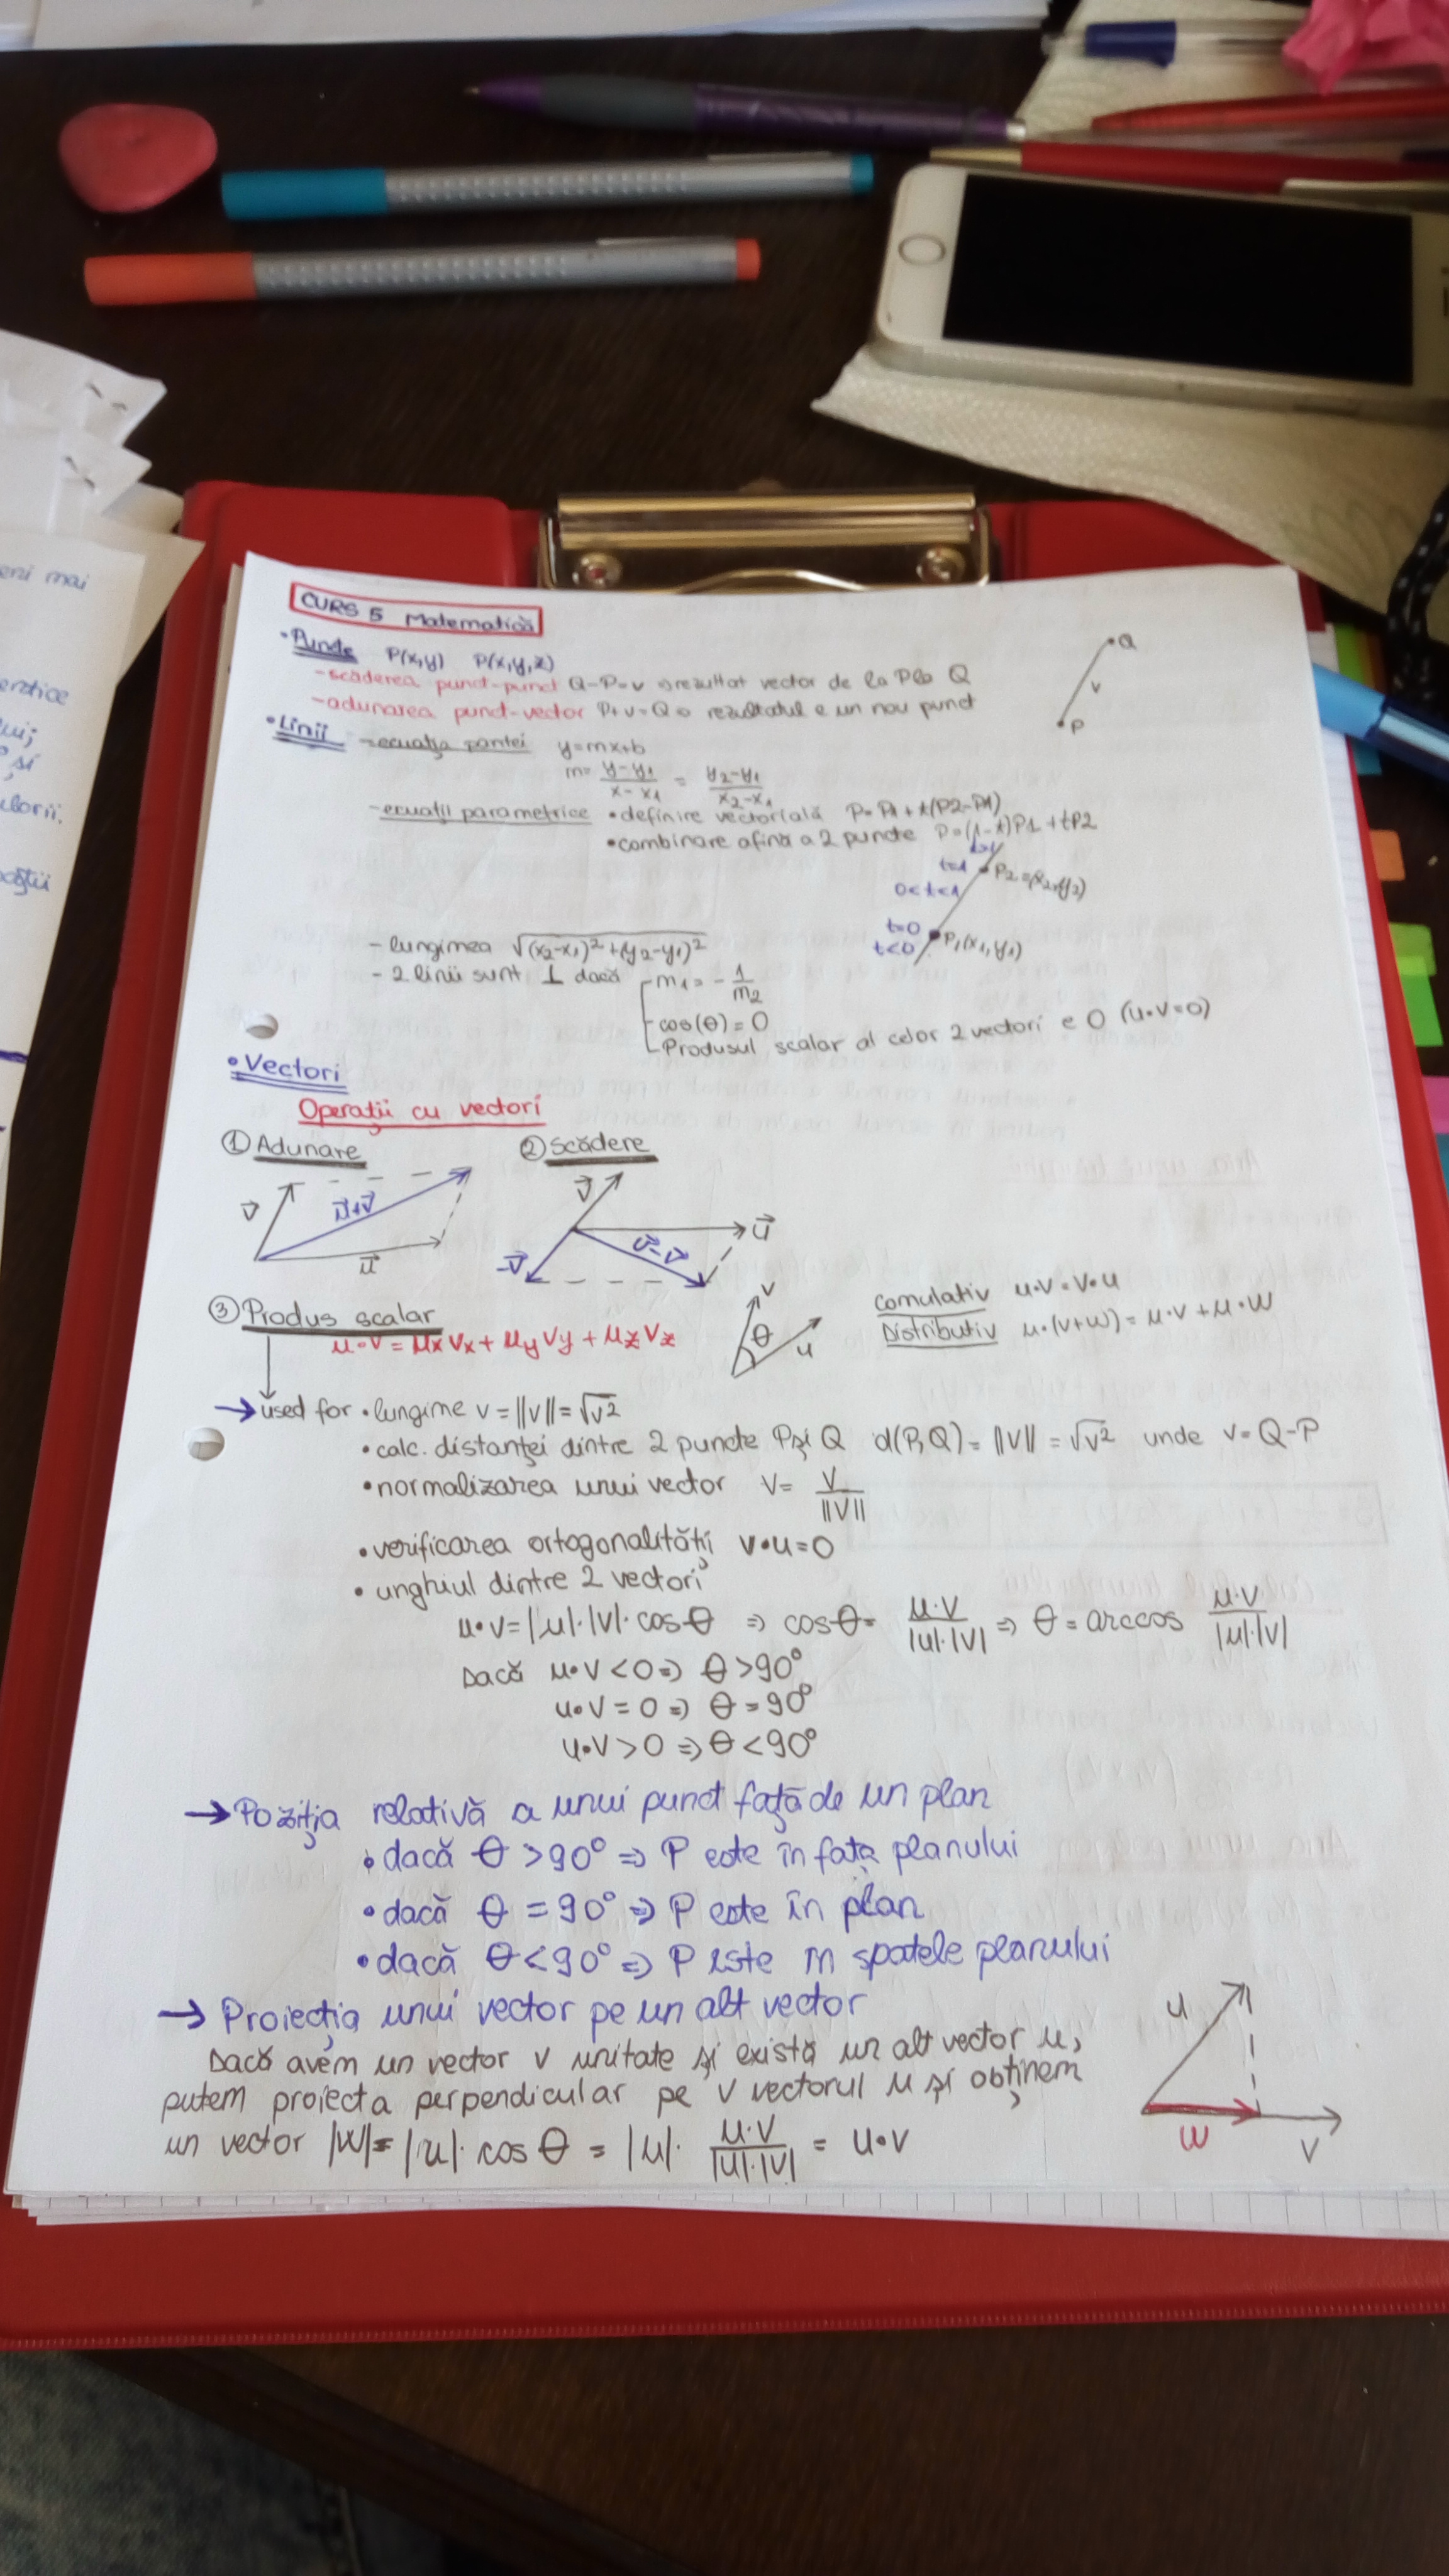 eni mai
entice
lui;
și
ulorii.
CURS 5 Matematică
•Puncte P(x,y) P(x,y,z)
-scăderea punct-punct Q-P=v ⇒ rezultat vector de la P la Q
-adunarea punct-vector P+v=Q ⇒ rezultatul e un nou punct
Q
v
P
•Linii -ecuația pantei y=mx+b
m= y-y1/x-x1 = y2-y1/x2-x1
-ecuații parametrice •definire vectorială P=P1+t(P2-P1)
•combinare afină a 2 puncte P=(1-t)P1+tP2
t>1
t=1 P2=(x2,y2)
0<t<1
t=0
t<0 P1(x1,y1)
- lungimea √(x2-x1)²+(y2-y1)²
- 2 linii sunt ⊥ dacă m1=-1/m2
cos(θ)=0
Produsul scalar al celor 2 vectori e 0 (u•v=0)
•Vectori
Operații cu vectori
①Adunare ②Scădere
v⃗ u⃗+v⃗ u⃗
v⃗ u⃗ u⃗-v⃗ -v⃗
③Produs scalar
u•v=uxvx+uyvy+uzvz
v θ u
Comulativ u•v=v•u
Distributiv u•(v+w)=u•v+u•w
→used for •lungime v=||v||=√v²
•calc. distanței dintre 2 puncte P și Q d(P,Q)=||v||=√v² unde v=Q-P
•normalizarea unui vector v= v/||v||
•verificarea ortogonalității v•u=0
•unghiul dintre 2 vectori
u•v=|u|·|v|·cosθ ⇒ cosθ= u·v/|u|·|v| ⇒ θ=arccos u·v/|u|·|v|
Dacă u•v<0 ⇒ θ>90°
u•v=0 ⇒ θ=90°
u•v>0 ⇒ θ<90°
→Poziția relativă a unui punct față de un plan
•dacă θ>90° ⇒ P este în fața planului
•dacă θ=90° ⇒ P este în plan
•dacă θ<90° ⇒ P este în spatele planului
→ Proiecția unui vector pe un alt vector
Dacă avem un vector v unitate și există un alt vector u,
putem proiecta perpendicular pe v vectorul u și obținem
un vector |w|=|u|·cosθ=|u|· u·v/|u|·|v| = u•v
u
w v